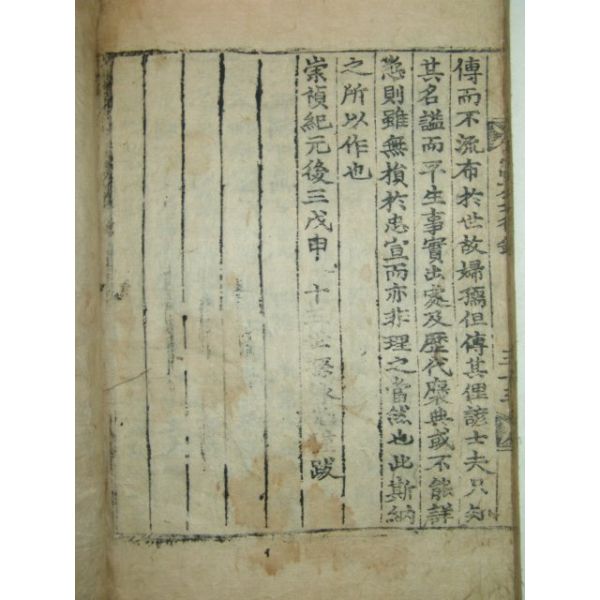 傳而不流布於世故婦孺但傳其俚諺士夫只知
其名諡而平生事實出處及歷代褒典或不能詳
悉則雖無損於忠宣而亦非理之當然也此斯納
之所以作也
崇禎紀元後三戊申 十 跋